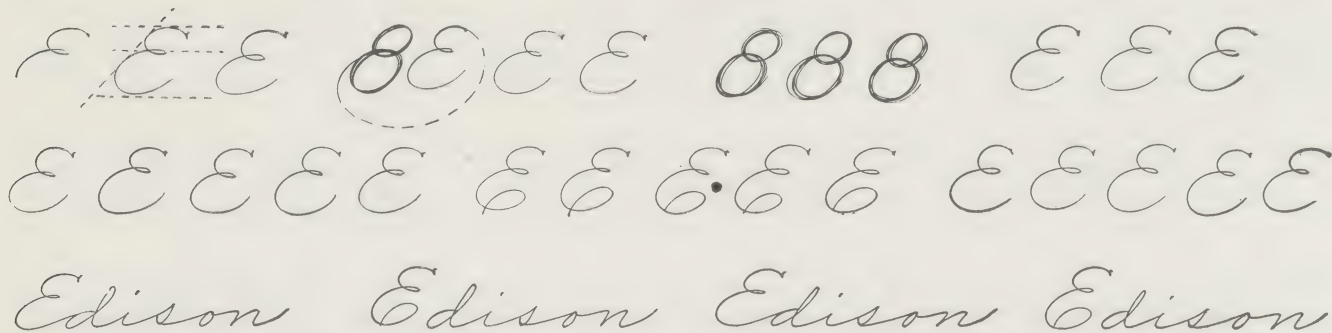 E E E 8 E E E 8 8 8 E E E
E E E E E E E E E E E E E E E
Edison Edison Edison Edison